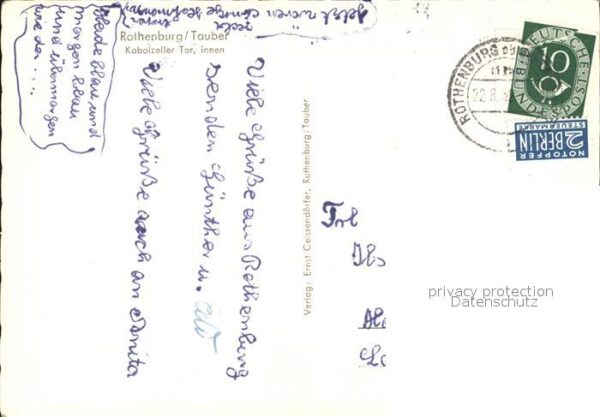 Rothenburg/Tauber
Kobolzeller Tor, innen
Viele Grüße aus Rothenburg
senden Günther u. Edi
Viele Grüße auch an Anita
Heute blau und
morgen blau
und übermorgen
wieder....
Jetzt waren
Verlag: Ernst Geissendörfer, Rothenburg/Tauber
Frl
ROTHENBURG
22.8.
DEUTSCHE
BUNDESPOST
10
NOTOPFER
2 BERLIN
STEUERMARKE
privacy protection
Datenschutz